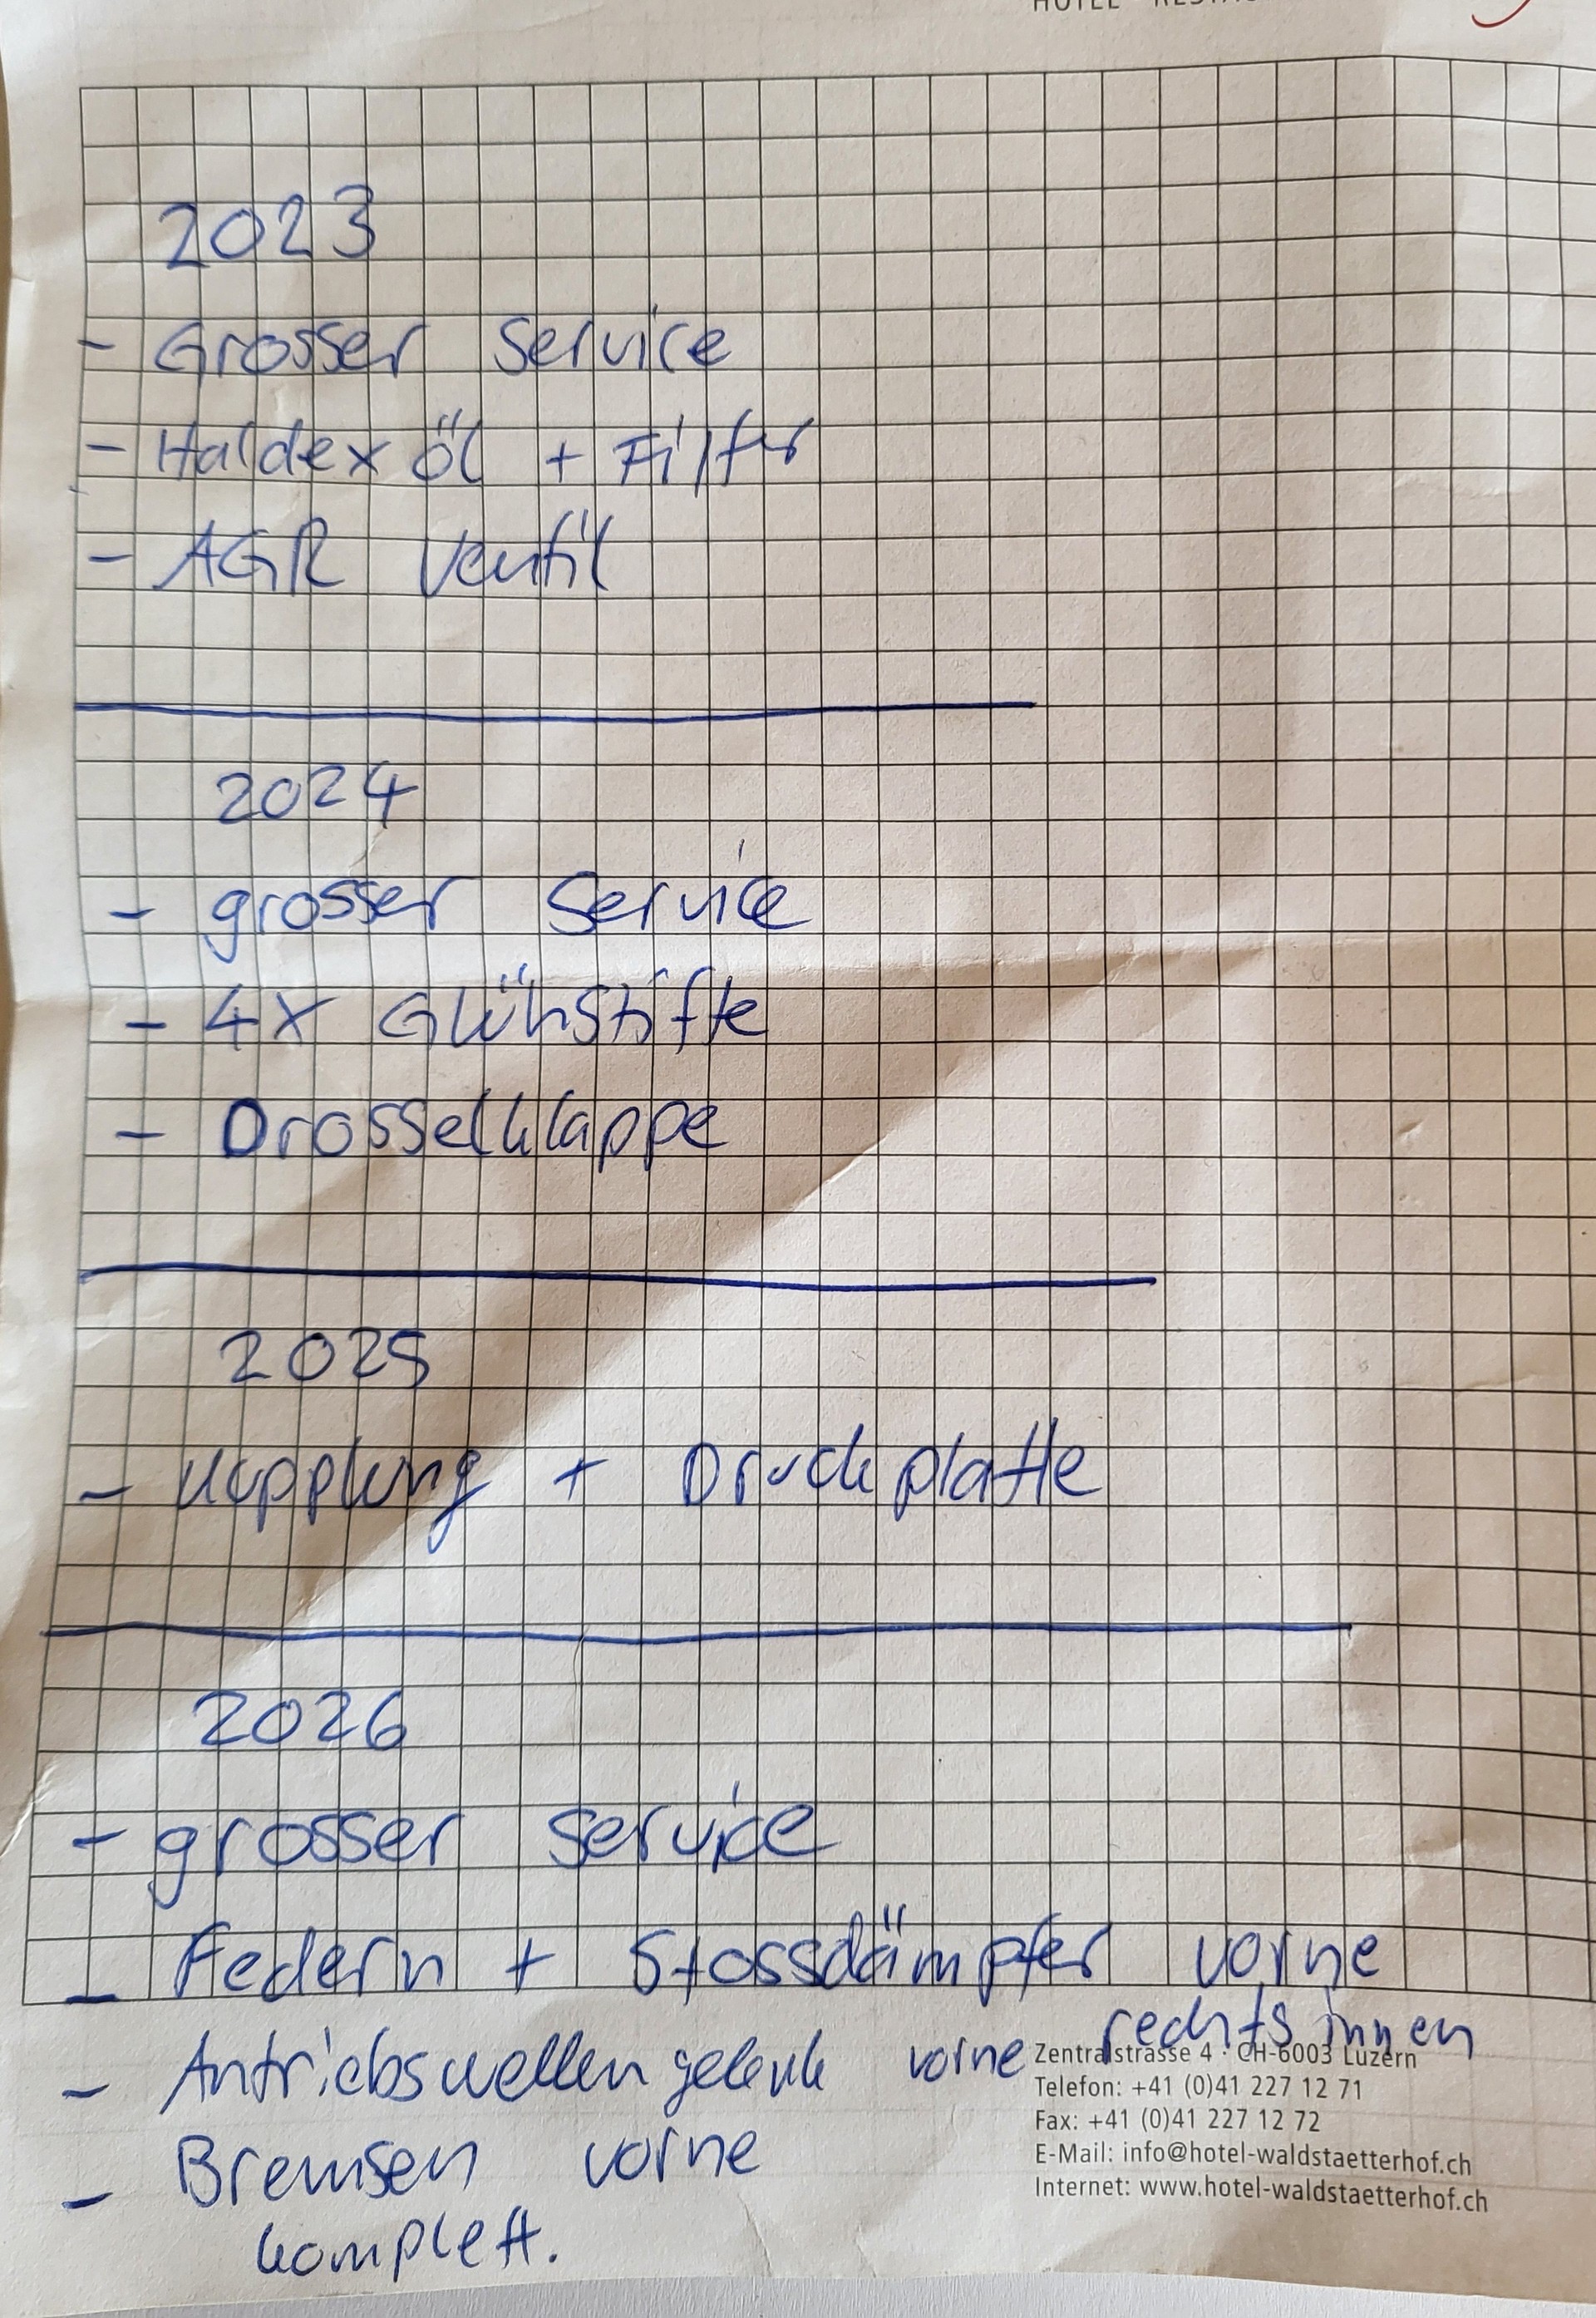 HOTEL
2023
- Grosser Service
- Haldex Öl + Filter
- AGR Ventil
2024
- grosser Service
- 4x Glühstifte
- Drosselklappe
2025
- Kupplung + Druckplatte
2026
- grosser Service
- Federn + Stossdämpfer vorne
- Antriebswellengelenk vorne rechts innen
- Bremsen vorne
komplett.
Zentralstrasse 4 · CH-6003 Luzern
Telefon: +41 (0)41 227 12 71
Fax: +41 (0)41 227 12 72
E-Mail: info@hotel-waldstaetterhof.ch
Internet: www.hotel-waldstaetterhof.ch